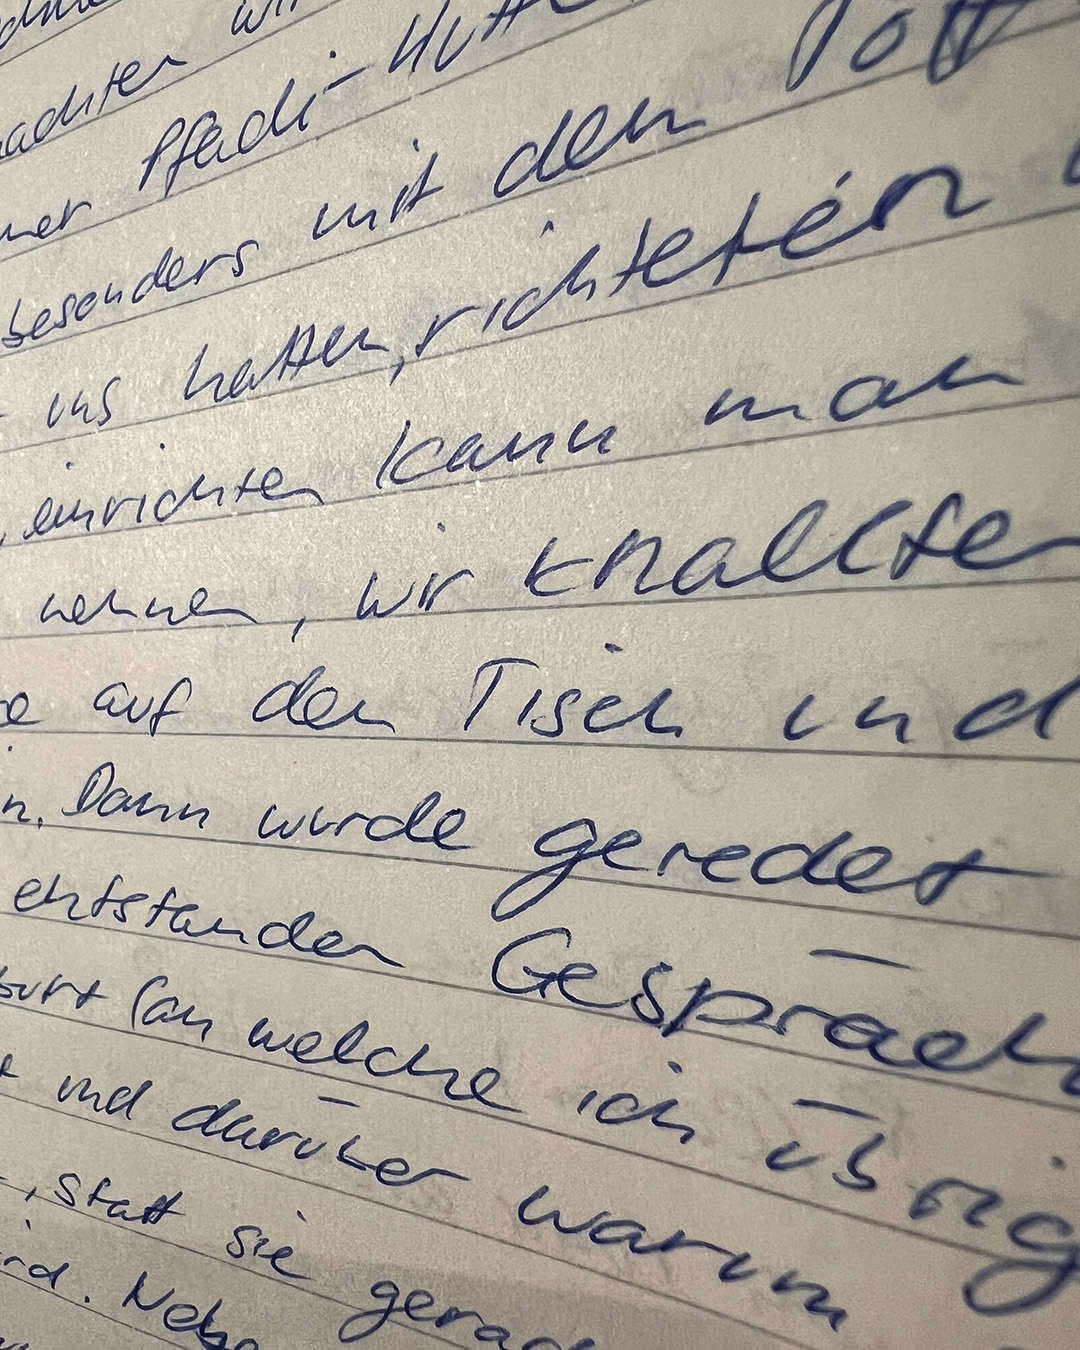 machten
ner Pfadi-Hütte
besonders mit den Pött
uns hatten, richteten
, einrichten kann man
nehmen, wir knallten
auf den Tisch und
n. Dann wurde geredet
entstanden Gespräch
burt (an welche ich übrig
und darüber warum
, statt sie gerad
ird. Nebe